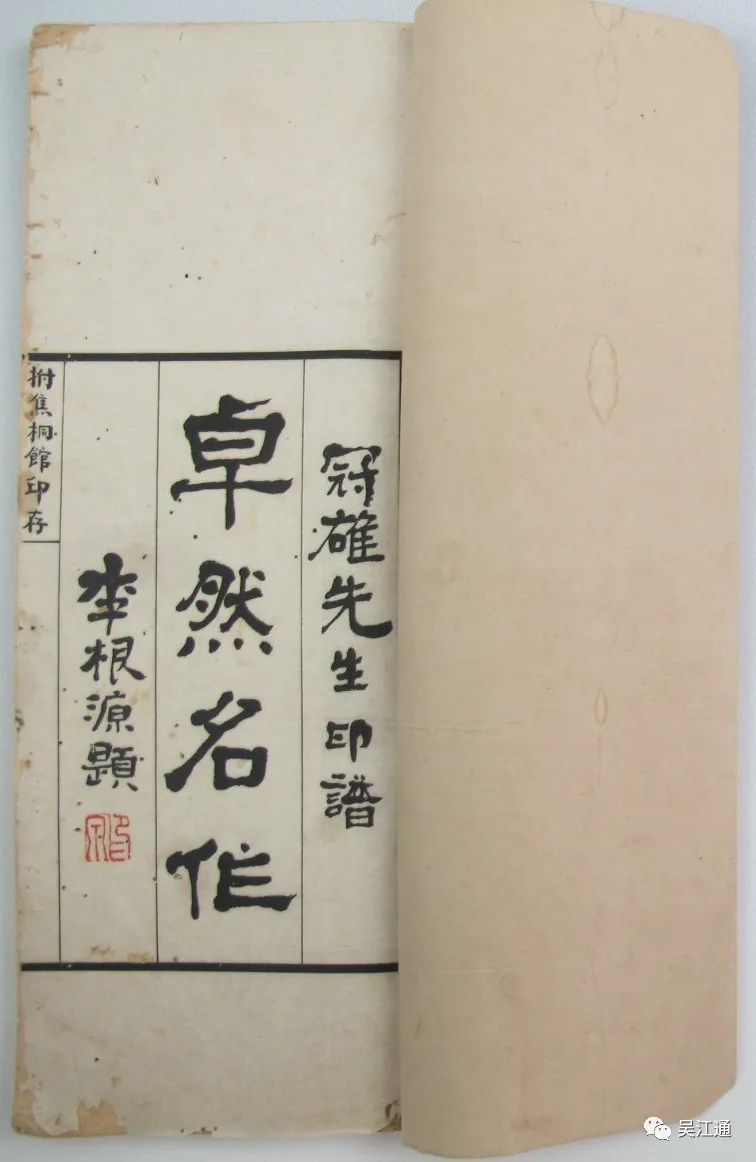 冠雄先生印譜
卓然名作
李根源題
附焦桐館印存
吴江通